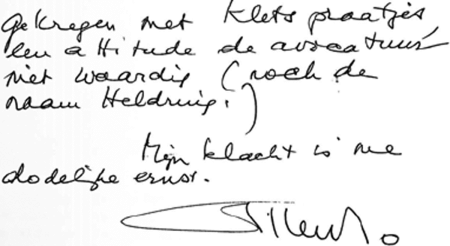 gekregen met kletspraatjes,
een attitude de avocatuur
niet waardig (noch de
naam Heldring!)
Mijn klacht is me
dodelijke ernst.